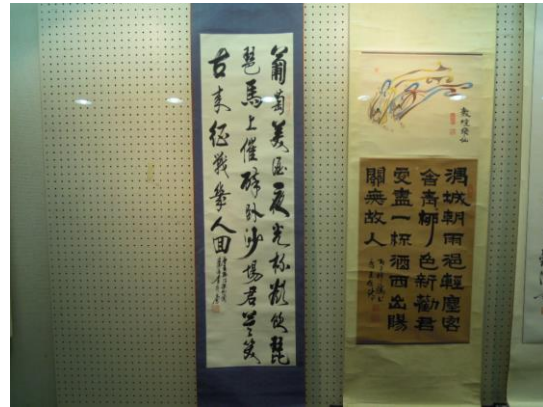 葡萄美酒夜光杯欲飲琵
琶馬上催醉卧沙場君莫笑
古来征戰幾人回
敦煌飛仙
渭城朝雨浥輕塵客
舍青柳色新勸君
更盡一杯酒西出陽
關無故人